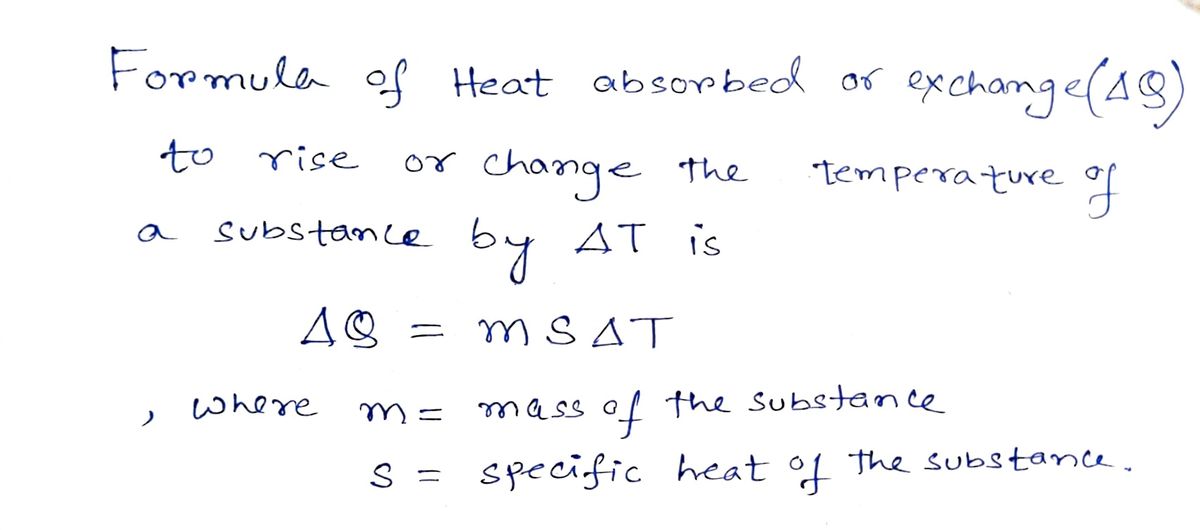 Formula of Heat absorbed or exchange(ΔQ)
to rise or change the temperature of
a substance by ΔT is
ΔQ = msΔT
, where m = mass of the substance
s = specific heat of the substance.